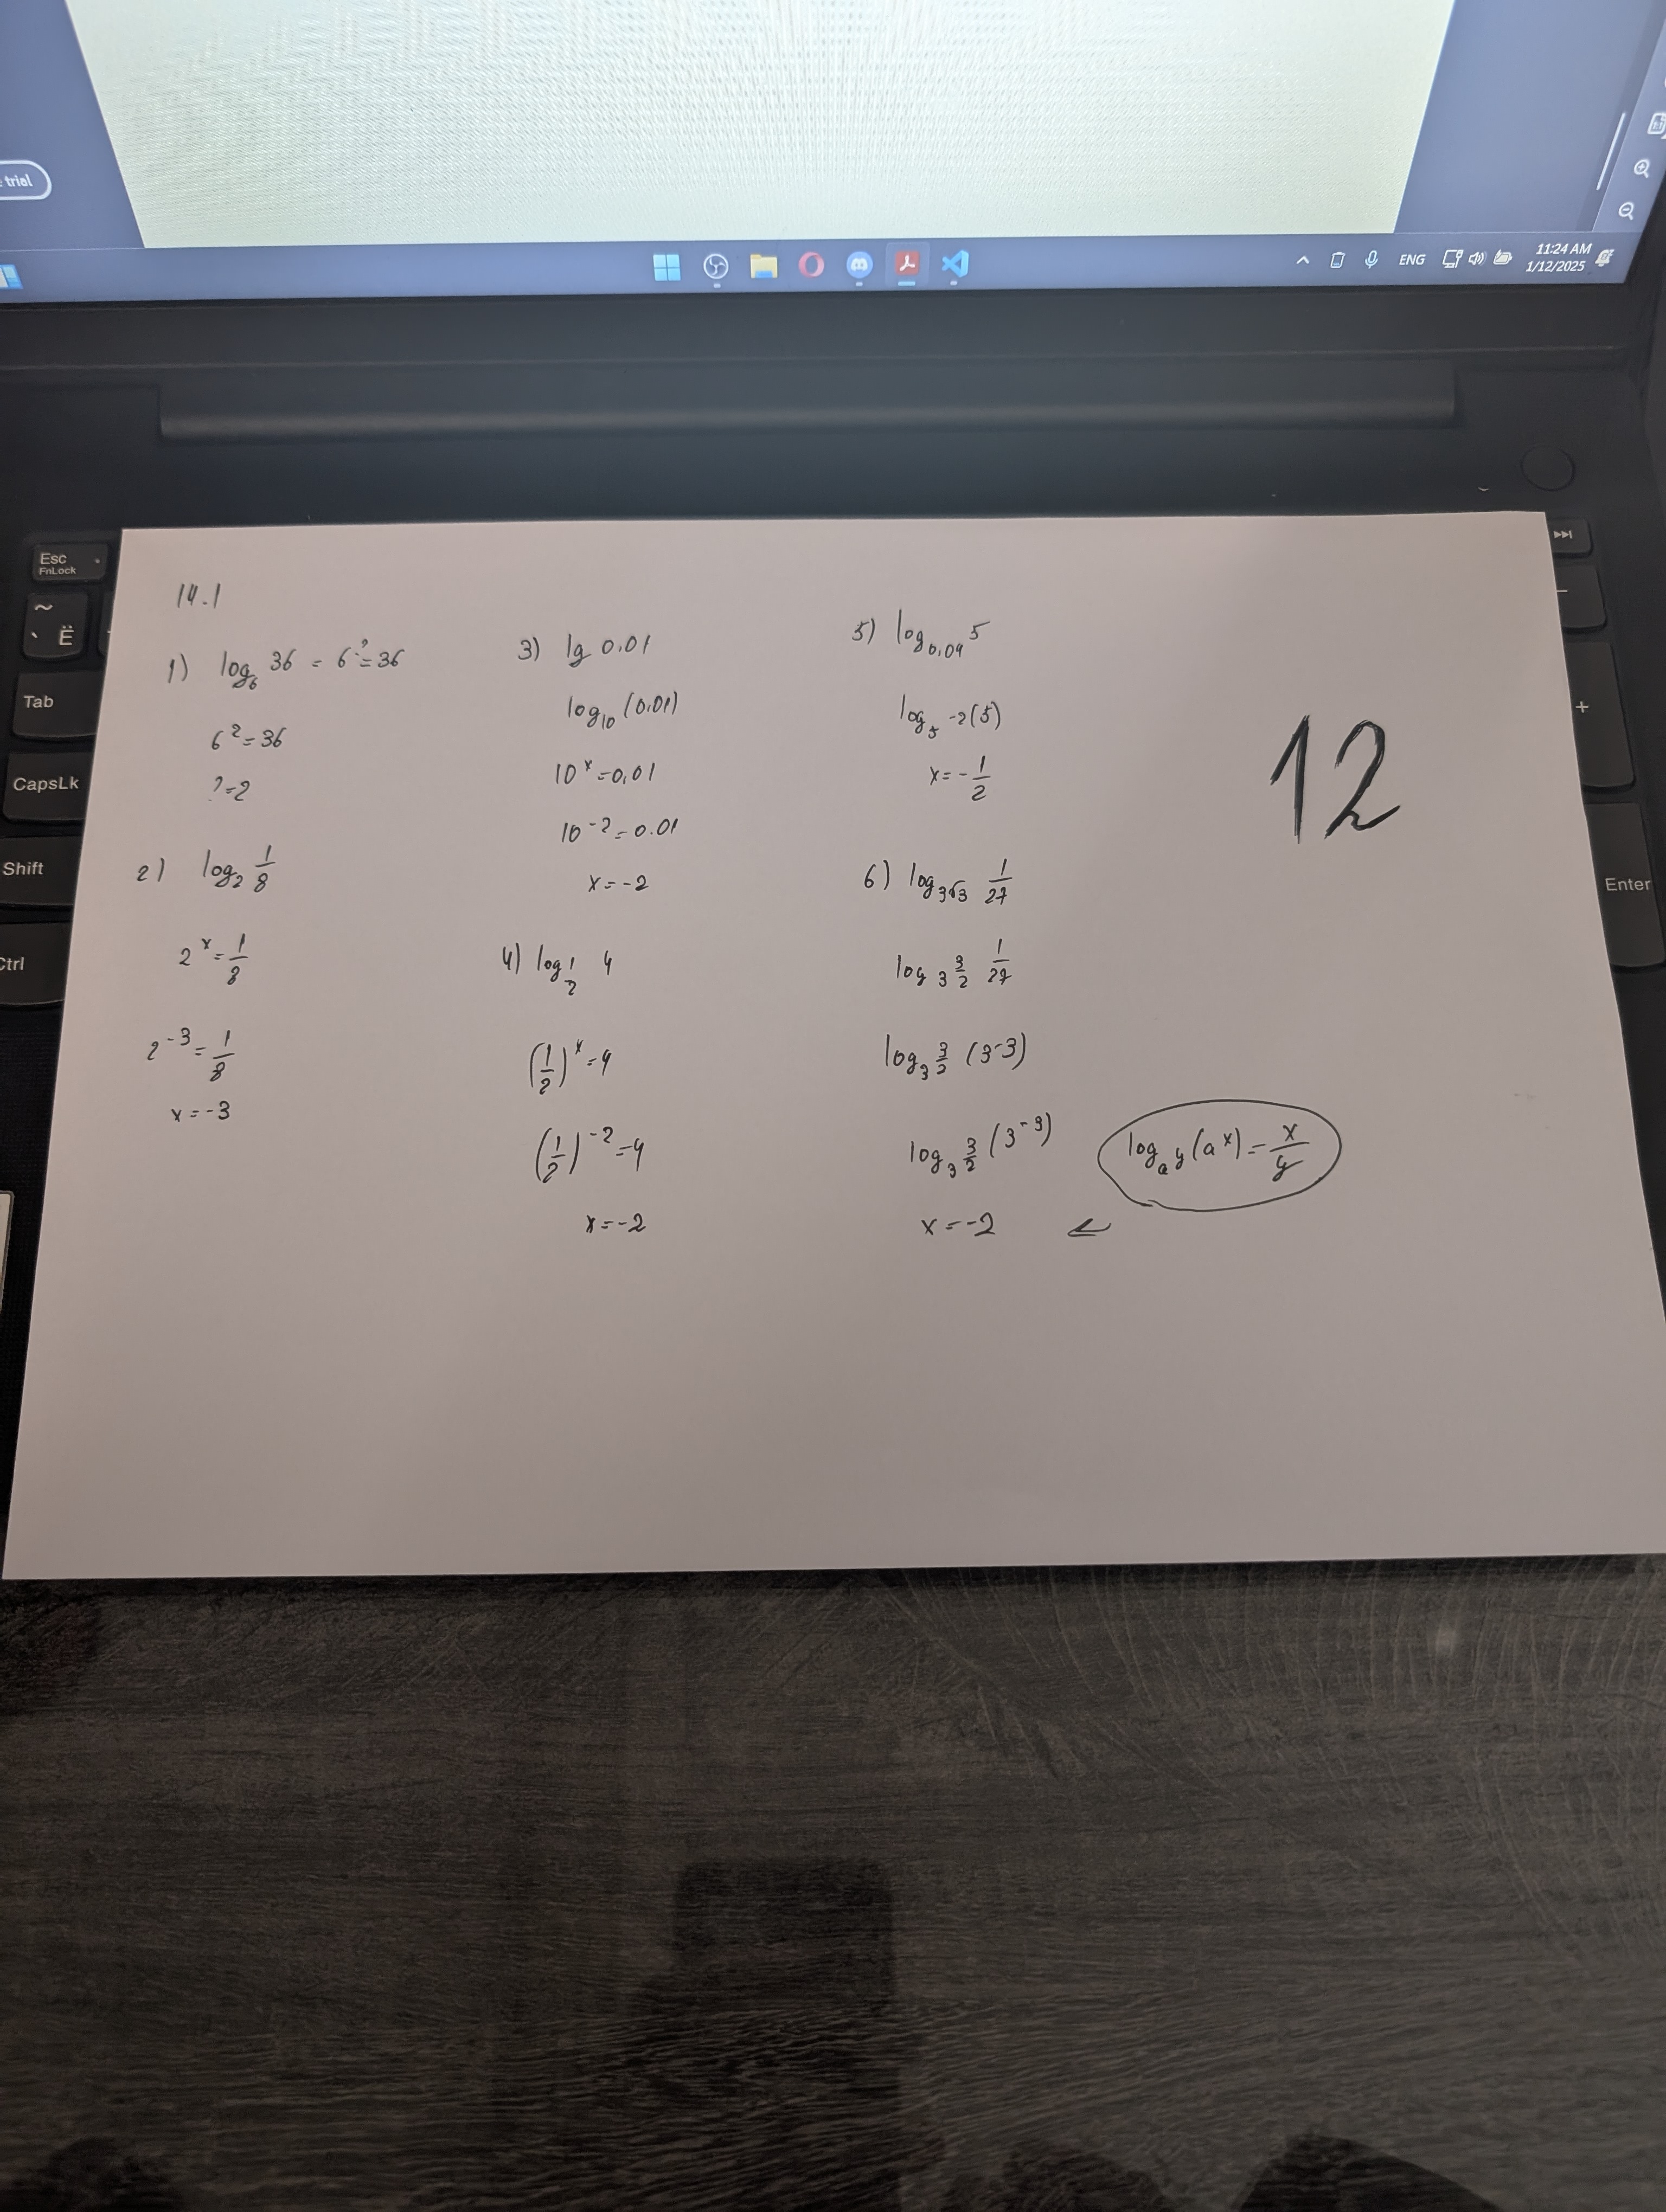 trial
ENG
11:24 AM
1/12/2025
Esc
FnLock
~
` Ё
Tab
CapsLk
Shift
Ctrl
+
Enter
14.1
1) log₆ 36 = 6^? = 36
6² = 36
? = 2
2) log₂ 1/8
2^x = 1/8
2^-3 = 1/8
x = -3
3) lg 0.01
log₁₀ (0.01)
10^x = 0,01
10^-2 = 0.01
x = -2
4) log_1/2 4
(1/2)^x = 4
(1/2)^-2 = 4
x = -2
5) log_0,04 5
log₅ -2(5)
x = -1/2
6) log_3√3 1/27
log 3 3/2 1/27
log₃ 3/2 (3-3)
log₃ 3/2 (3^-3)
log_a y (a^x) = x/y
x = -2 ←
12